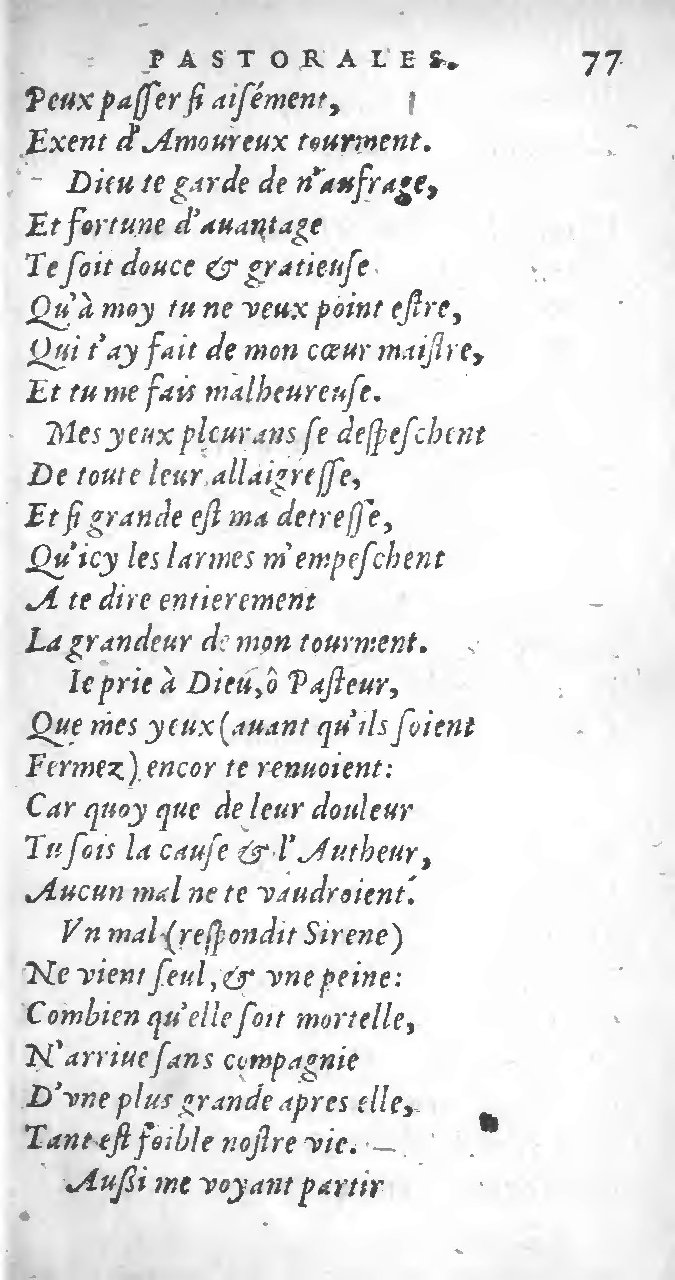 PASTORALES. 77
Peux paſſer ſi aiſément,
Exent d'Amoureux tourment.
Dieu te garde de n'aufrage,
Et fortune d'auantage
Te ſoit douce & gratieuſe
Qu'à moy tu ne veux point eſtre,
Qui t'ay fait de mon cœur maiſtre,
Et tu me fais malheureuſe.
Mes yeux pleurans ſe deſpeſchent
De toute leur allaigreſſe,
Et ſi grande eſt ma detreſſe,
Qu'icy les larmes m'empeſchent
A te dire entierement
La grandeur de mon tourment.
Ie prie à Dieu, ô Paſteur,
Que mes yeux (auant qu'ils ſoient
Fermez) encor te renuoient:
Car quoy que de leur douleur
Tu ſois la cauſe & l'Autheur,
Aucun mal ne te vaudroient.
Vn mal (reſpondit Sirene)
Ne vient ſeul, & vne peine:
Combien qu'elle ſoit mortelle,
N'arriue ſans compagnie
D'vne plus grande apres elle,
Tant eſt foible noſtre vie.
Außi me voyant partir